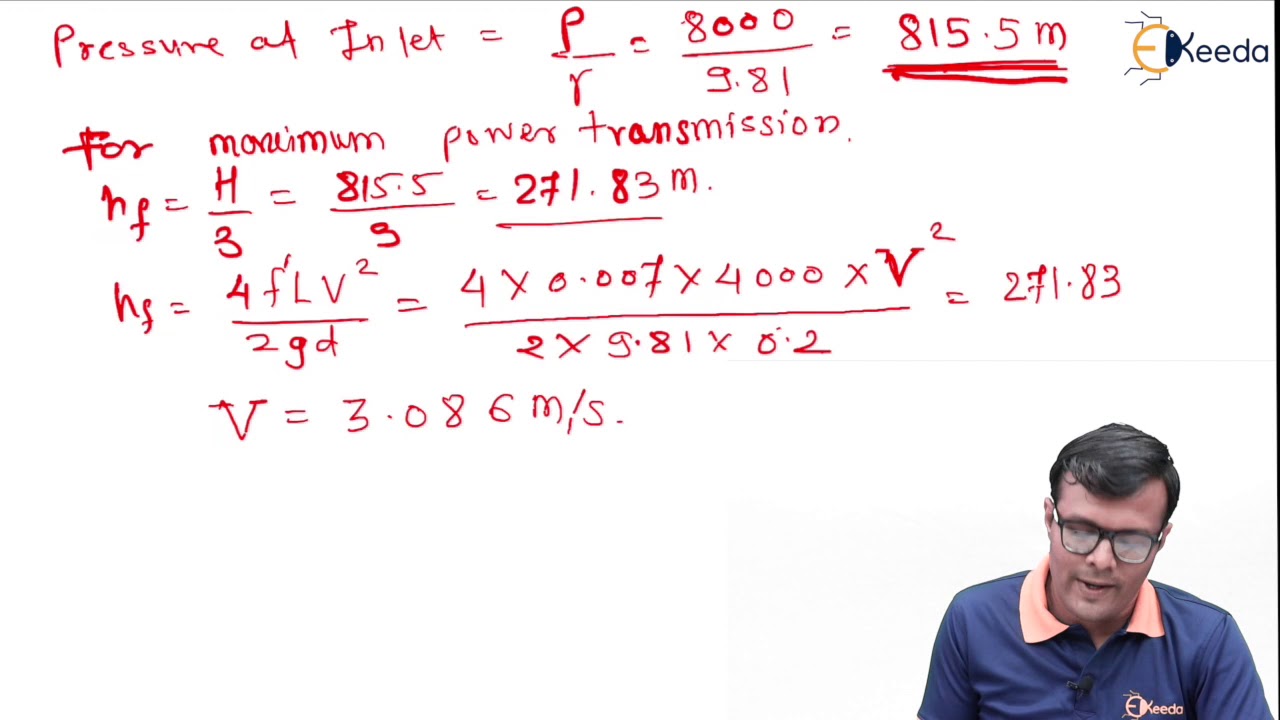 Pressure at Inlet = P/r = 8000/9.81 = 815.5 m
EKeeda
For maximum power transmission.
hf = H/3 = 815.5/3 = 271.83 m.
hf = 4f'LV²/2gd = 4 × 0.007 × 4000 × V²/2 × 9.81 × 0.2 = 271.83
V = 3.086 m/s.
EKeeda